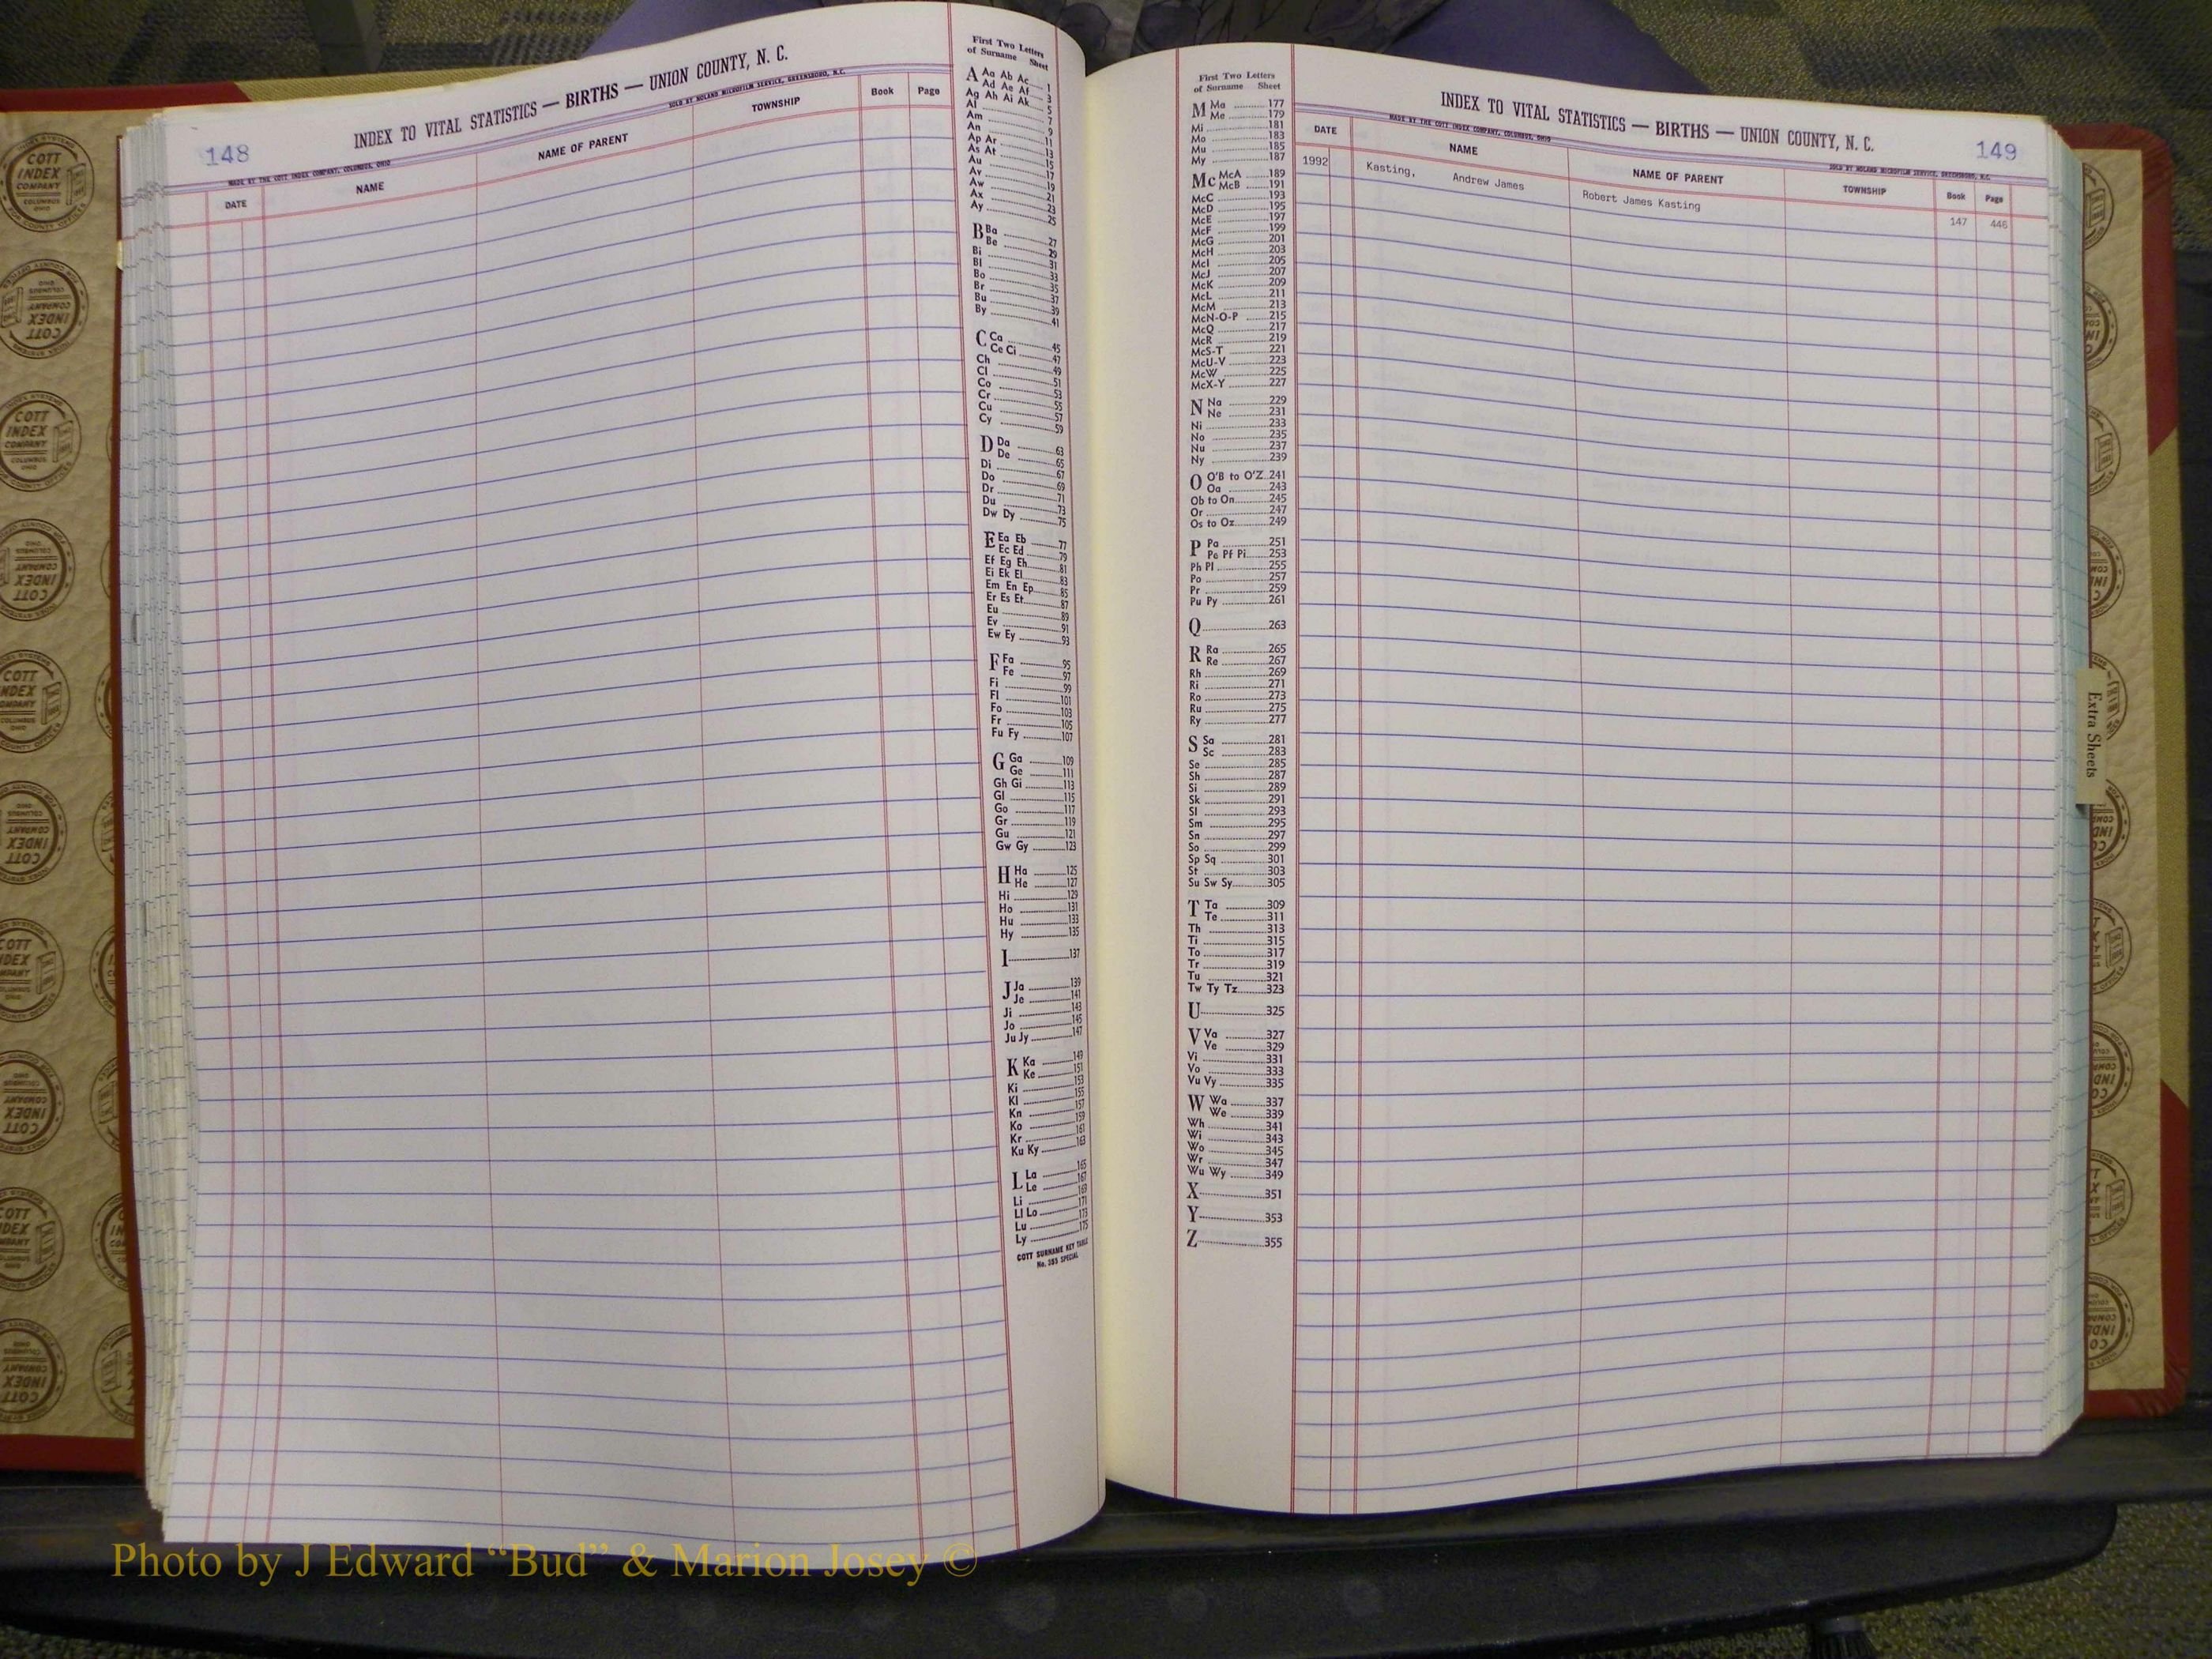 148
INDEX TO VITAL STATISTICS — BIRTHS — UNION COUNTY, N. C.
MADE BY THE COTT INDEX COMPANY, COLUMBUS, OHIO
SOLD BY NOLAND MICROFILM SERVICE, GREENSBORO, N.C.
DATE NAME NAME OF PARENT TOWNSHIP Book Page
First Two Letters
of Surname Sheet
A Aa Ab Ac 1
Ad Ae Af 3
Ag Ah Ai Ak 5
Al 7
Am 9
An 11
Ap Ar 13
As At 15
Au 17
Av 19
Aw 21
Ax 23
Ay 25
B Ba 27
Be 29
Bi 31
Bl 33
Bo 35
Br 37
Bu 39
By 41
C Ca 45
Ce Ci 47
Ch 49
Cl 51
Co 53
Cr 55
Cu 57
Cy 59
D Da 63
De 65
Di 67
Do 69
Dr 71
Du 73
Dw Dy 75
E Ea Eb 77
Ec Ed 79
Ef Eg Eh 81
Ei Ek El 83
Em En Ep 85
Er Es Et 87
Eu 89
Ev 91
Ew Ey 93
F Fa 95
Fe 97
Fi 99
Fl 101
Fo 103
Fr 105
Fu Fy 107
G Ga 109
Ge 111
Gh Gi 113
Gl 115
Go 117
Gr 119
Gu 121
Gw Gy 123
H Ha 125
He 127
Hi 129
Ho 131
Hu 133
Hy 135
I 137
J Ja 139
Je 141
Ji 143
Jo 145
Ju Jy 147
K Ka 149
Ke 151
Ki 153
Kl 155
Kn 157
Ko 159
Kr 161
Ku Ky 163
L La 165
Le 167
Li 169
Ll Lo 171
Lu 173
Ly 175
COTT SURNAME KEY TABLE
No. 355 SPECIAL
First Two Letters
of Surname Sheet
M Ma 177
Me 179
Mi 181
Mo 183
Mu 185
My 187
Mc McA 189
McB 191
McC 193
McD 195
McE 197
McF 199
McG 201
McH 203
McI 205
McJ 207
McK 209
McL 211
McM 213
McN-O-P 215
McQ 217
McR 219
McS-T 221
McU-V 223
McW 225
McX-Y 227
N Na 229
Ne 231
Ni 233
No 235
Nu 237
Ny 239
O O'B to O'Z 241
Oa 243
Ob to On 245
Or 247
Os to Oz 249
P Pa 251
Pe Pf Pi 253
Ph Pl 255
Po 257
Pr 259
Pu Py 261
Q 263
R Ra 265
Re 267
Rh 269
Ri 271
Ro 273
Ru 275
Ry 277
S Sa 281
Sc 283
Se 285
Sh 287
Si 289
Sk 291
Sl 293
Sm 295
Sn 297
So 299
Sp Sq 301
St 303
Su Sw Sy 305
T Ta 309
Te 311
Th 313
Ti 315
To 317
Tr 319
Tu 321
Tw Ty Tz 323
U 325
V Va 327
Ve 329
Vi 331
Vo 333
Vu Vy 335
W Wa 337
We 339
Wh 341
Wi 343
Wo 345
Wr 347
Wu Wy 349
X 351
Y 353
Z 355
INDEX TO VITAL STATISTICS — BIRTHS — UNION COUNTY, N. C.
149
MADE BY THE COTT INDEX COMPANY, COLUMBUS, OHIO
SOLD BY NOLAND MICROFILM SERVICE, GREENSBORO, N.C.
DATE NAME NAME OF PARENT TOWNSHIP Book Page
1992 Kasting, Andrew James Robert James Kasting 147 446
Extra Sheets
COTT
INDEX
COMPANY
COLUMBUS
OHIO
Photo by J Edward “Bud” & Marion Josey ©